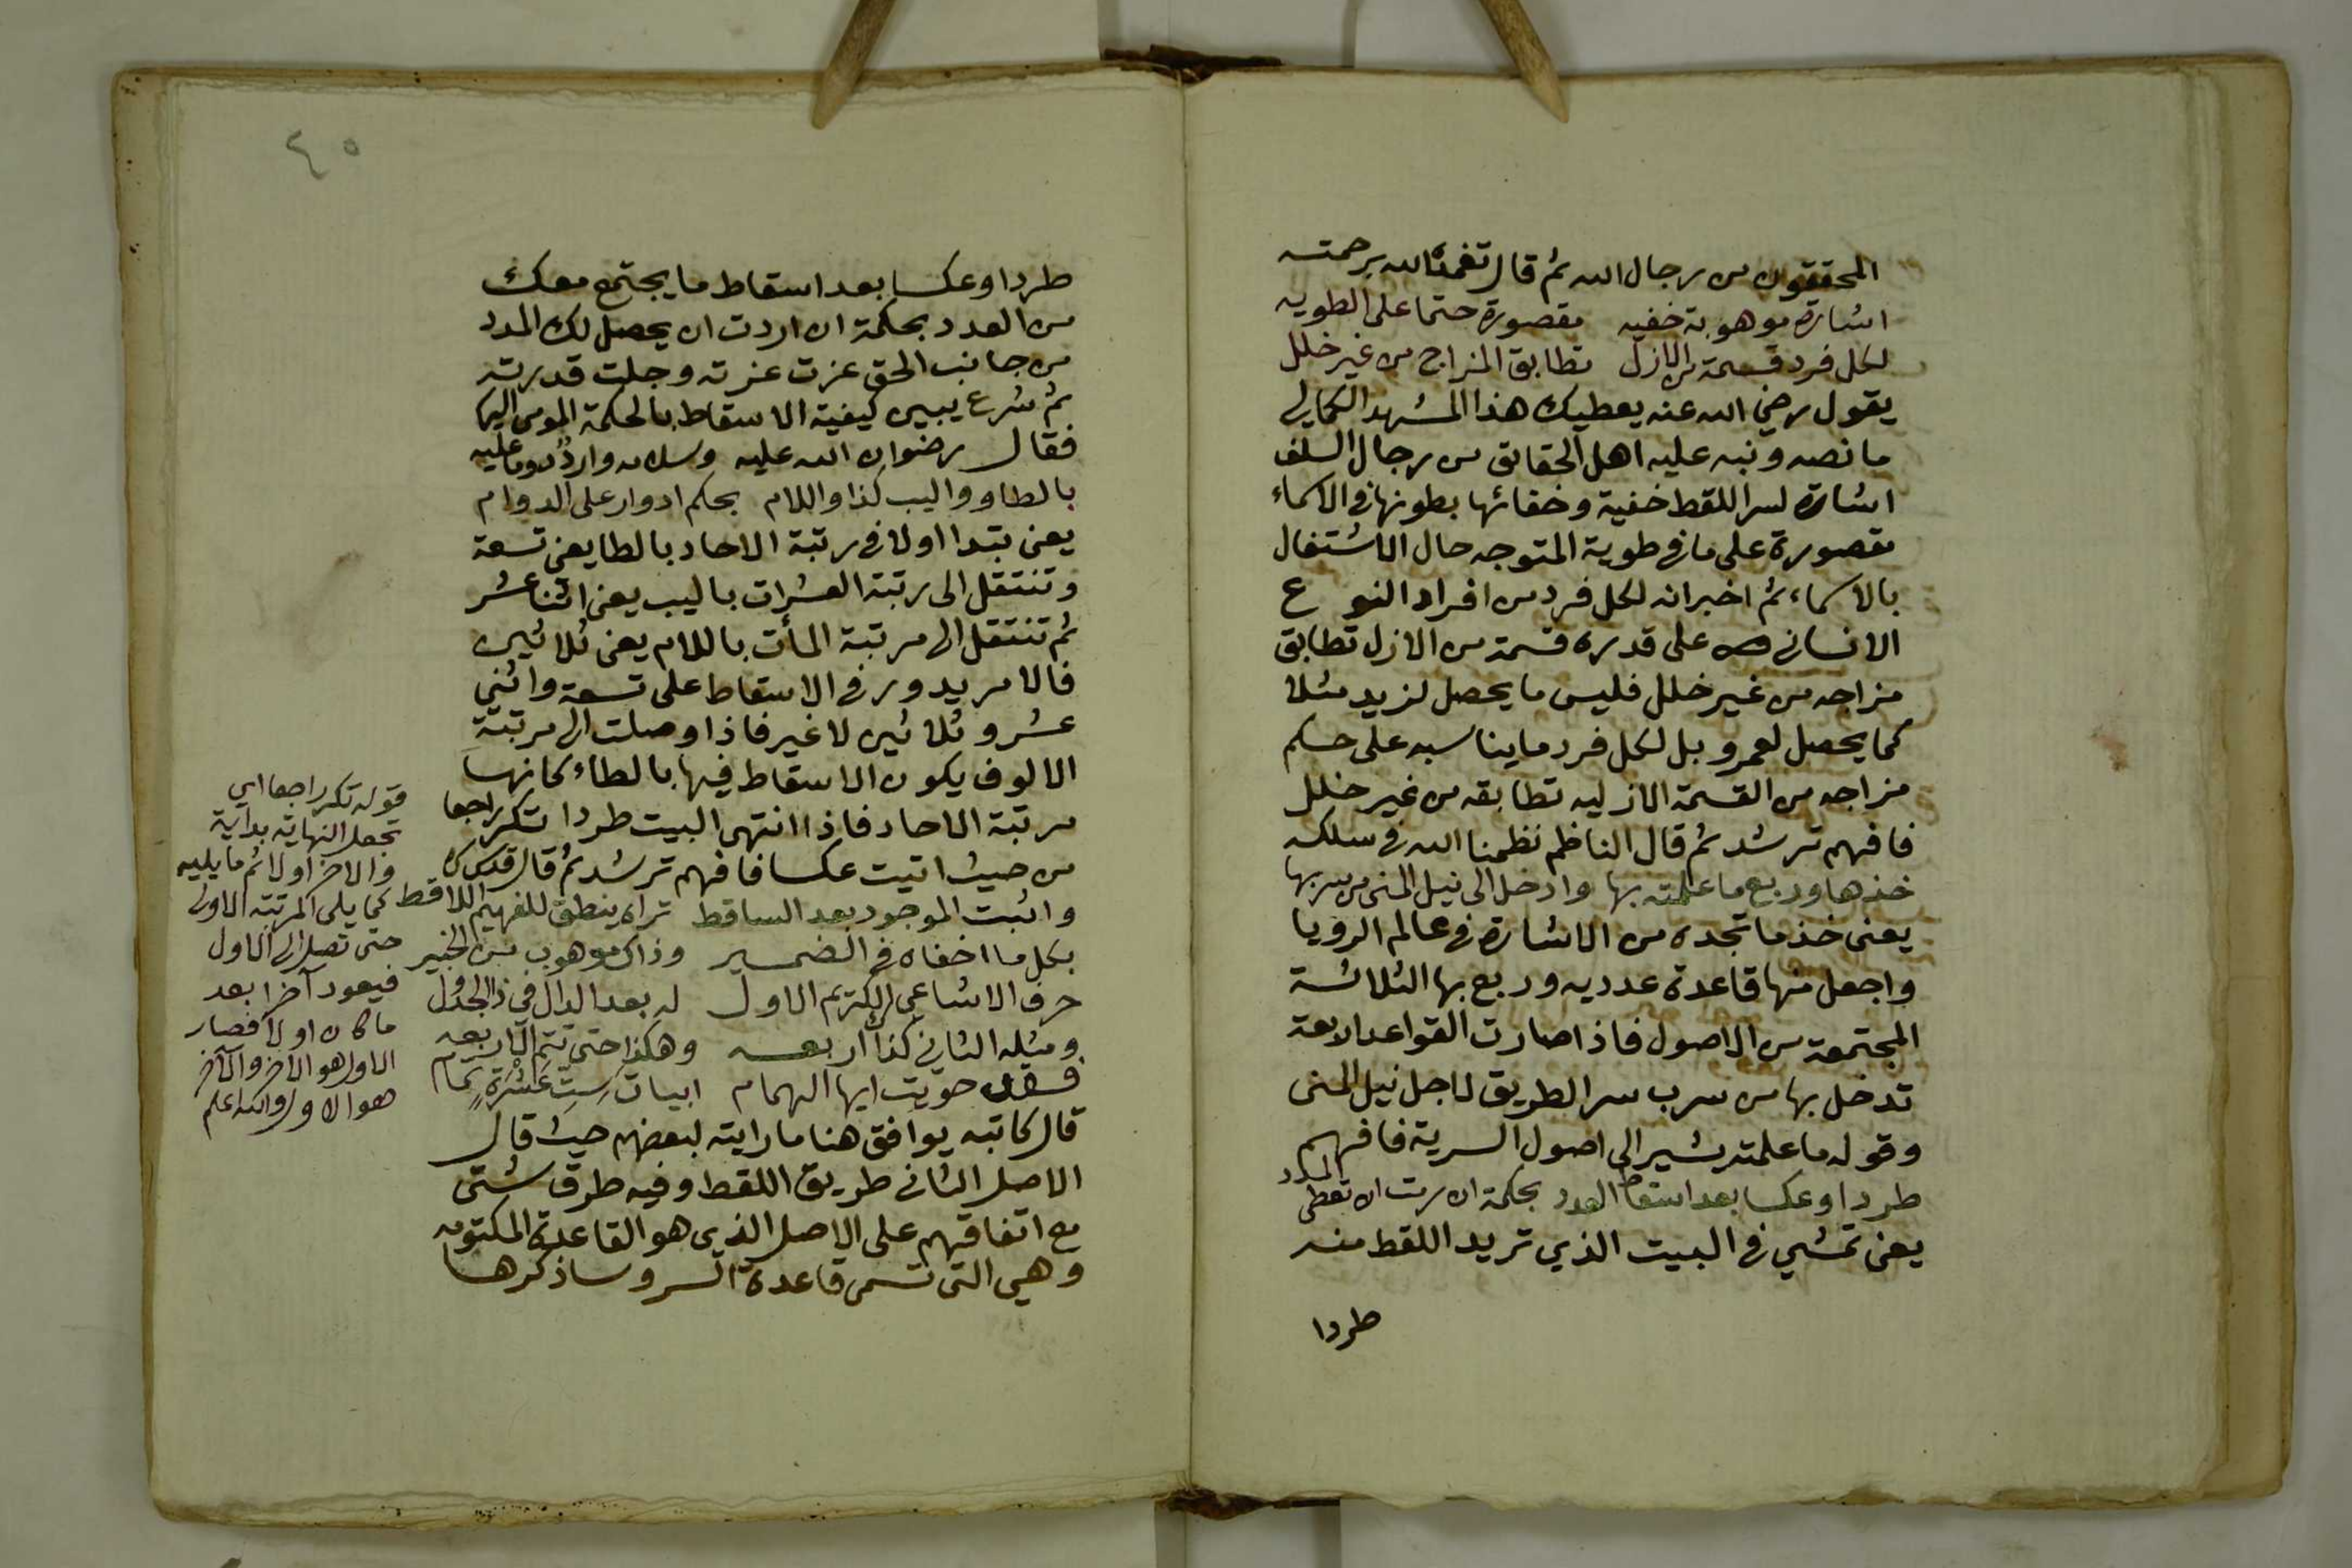 المحققون من رجال الله ثم قال تغمده الله برحمته
اشارة موهوبة خفيه مقصورة حتما على الطويه
لكل فرد قسمة من الازل تطابق المزاج من غير خلل
يقول رضي الله عنه يعطيك هذا المشهد الكمالي
ما نصه ونبه عليه اهل الحقائق من رجال السلف
اشارة لسر اللقط خفية وخفائها بطونها في الاسماء
مقصورة على ما في طوية المتوجه حال الاشتغال
بالاسماء ثم اخبر انه لكل فرد من افراد النوع
الانساني على قدره قسمة من الازل تطابق
مزاجه من غير خلل فليس ما يحصل لزيد مثلا
كما يحصل لعمرو بل لكل فرد ما يناسبه على حسكم
مزاجه من القسمة الازليه تطابقه من غير خلل
فافهم ترشد ثم قال الناظم نظمنا الله في سلكه
خذها وربع ما علمته بها وادخل الى نيل المنى من سربها
يعني خذ ما تجده من الاشارة في عالم الرويا
واجعل منها قاعدة عدديه وربع بها الثلاثة
المجتمعة من الاصول فاذا صارت القواعد اربعة
تدخل بها من سرب سر الطريق لاجل نيل المنى
وقوله ما علمته يشير الى اصول السرية فافهم
طردا وعكسا بعد اسقاط العدد بحكمة ان رمت ان تعطى المدد
يعني تمشي في البيت الذي تريد اللقط منه
طردا
٤٠
طردا وعكسا بعد اسقاط ما يجتمع معك
من العدد بحكمة ان اردت ان يحصل لك المدد
من جانب الحق عزت عزته وجلت قدرته
ثم شرع يبين كيفية الاسقاط بالحكمة المومى اليها
فقال رضوان الله عليه وسلامه وارد
بالطا وواليب كذا واللام بحكم ادوار على الدوام
يعني تبتدا اولا في رتبة الاحاد بالطا يعني تسعة
وتنتقل الى رتبة العشرات باليب يعني اثنا عشر
ثم تنتقل الى مرتبة المأت باللام يعني ثلاثين
فالامر يدور في الاسقاط على تسعة واثني
عشر وثلاثين لا غير فاذا وصلت الى مرتبة
الالوف يكون الاسقاط فيها بالطاء كانها
مرتبة الاحاد فاذا انتهى البيت طردا تكر راجعا
من حيث اتيت عكسا فافهم ترشد ثم قال قدس سره
واثبت الموجود بعد الساقط تراه ينطق للفهيم اللاقط
بكل ما اخفاه في الضمير وذاك موهوب من الخبير
حرف الاشاعي الكريم الاول له بعد الدال في ذا الجدول
ومثله الثاني كذا اربعه وهكذا حتى تتم الاربعه
فقد حويت ايها الهمام ابيات ست عشرة تمام
قال كاتبه يوافق هنا ما رايته لبعضهم حيث قال
الاصل الثاني طريق اللقط وفيه طرق شتى
مع اتفاقهم على الاصل الذي هو القاعدة المكتومه
وهي التي تسمى قاعدة السر وساذكرها
قوله تكر راجعا اي
تجعل النهاية بداية
والاخر اولا ثم ما يليه
كما يلي المرتبة الاولى
حتى تصل الى الاول
فيعود آخرا بعد
ما كان اولا فصار
الاول هو الاخر والآخر
هو الاول والله اعلم